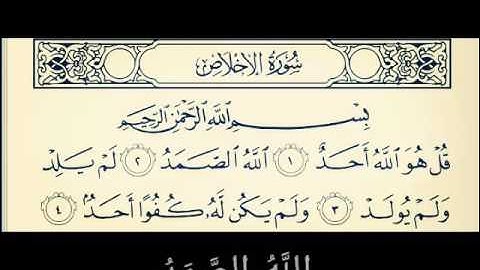 سُورَةُ الإِخْلَاصِ
بِسْمِ اللَّهِ الرَّحْمَٰنِ الرَّحِيمِ
قُلْ هُوَ اللَّهُ أَحَدٌ ١ اللَّهُ الصَّمَدُ ٢ لَمْ يَلِدْ
وَلَمْ يُولَدْ ٣ وَلَمْ يَكُن لَّهُۥ كُفُوًا أَحَدٌۢ ٤
اللَّهُ الصَّمَدُ